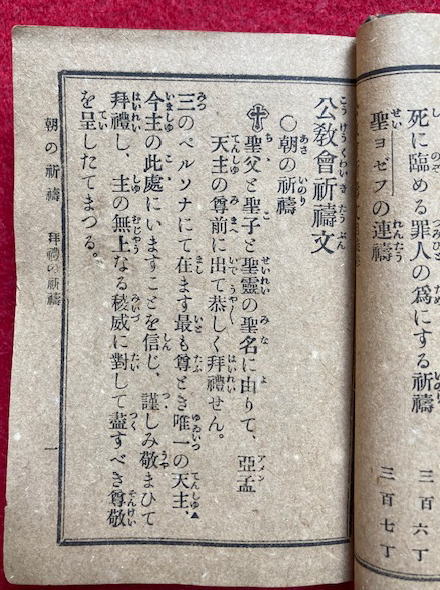 死に臨める罪人の爲にする祈禱 三百六丁
聖ヨゼフの連禱 三百七丁
公敎會祈禱文
○朝の祈禱
✝聖父と聖子と聖靈の聖名に由りて、亞孟
天主の尊前に出て恭しく拜禮せん。
三のペルソナにて在ます最も尊とき唯一の天主、▲
今主の此處にいますことを信じ、謹しみ敬まひて
拜禮し、主の無上なる稜威に對して盡すべき尊敬
を呈したてまつる。
朝の祈禱 拜禮の祈禱 一